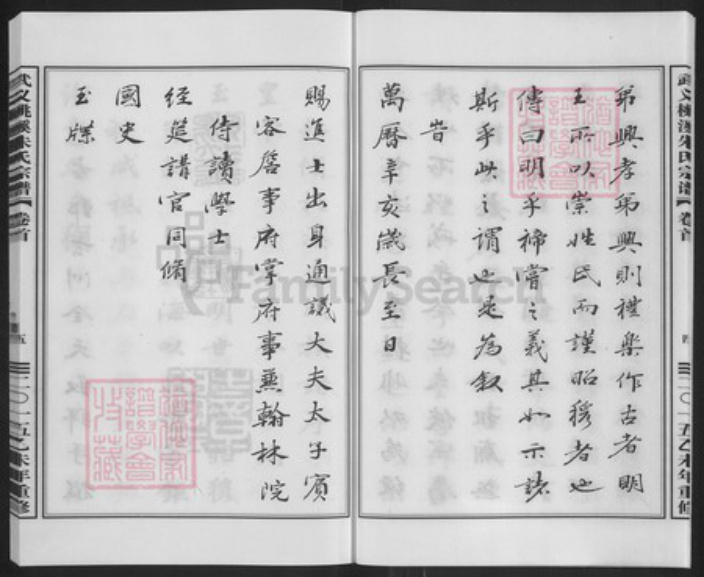 武义桃溪朱氏宗谱 卷首
四
二〇一五乙未年重修
弟興孝弟興則禮樂作古者明
王所以崇姓氏而謹昭穆者也
傳曰明乎禘嘗之義其如示諸
斯乎此之謂也是為叙
旹
萬曆辛亥歲長至日
賜進士出身通議大夫太子賓
客詹事府掌府事兼翰林院
侍讀學士
經筵講官同脩
國史
玉牒
武义桃溪朱氏宗谱 卷首
五
二〇一五乙未年重修
FamilySearch